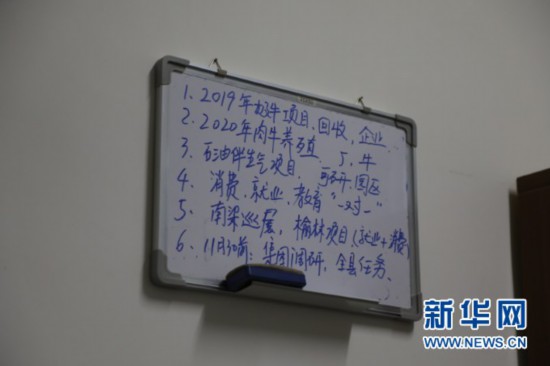 1. 2019年奶牛项目, 回收, 企业
2. 2020年肉牛养殖 5. 牛
3. 石油伴生气项目, 园区
4. 消费、就业、教育“一对一”
5. 南梁巡展, 榆林项目(就业+消费)
6. 11月30前: 集团调研, 全县任务、
新华网
WWW.NEWS.CN